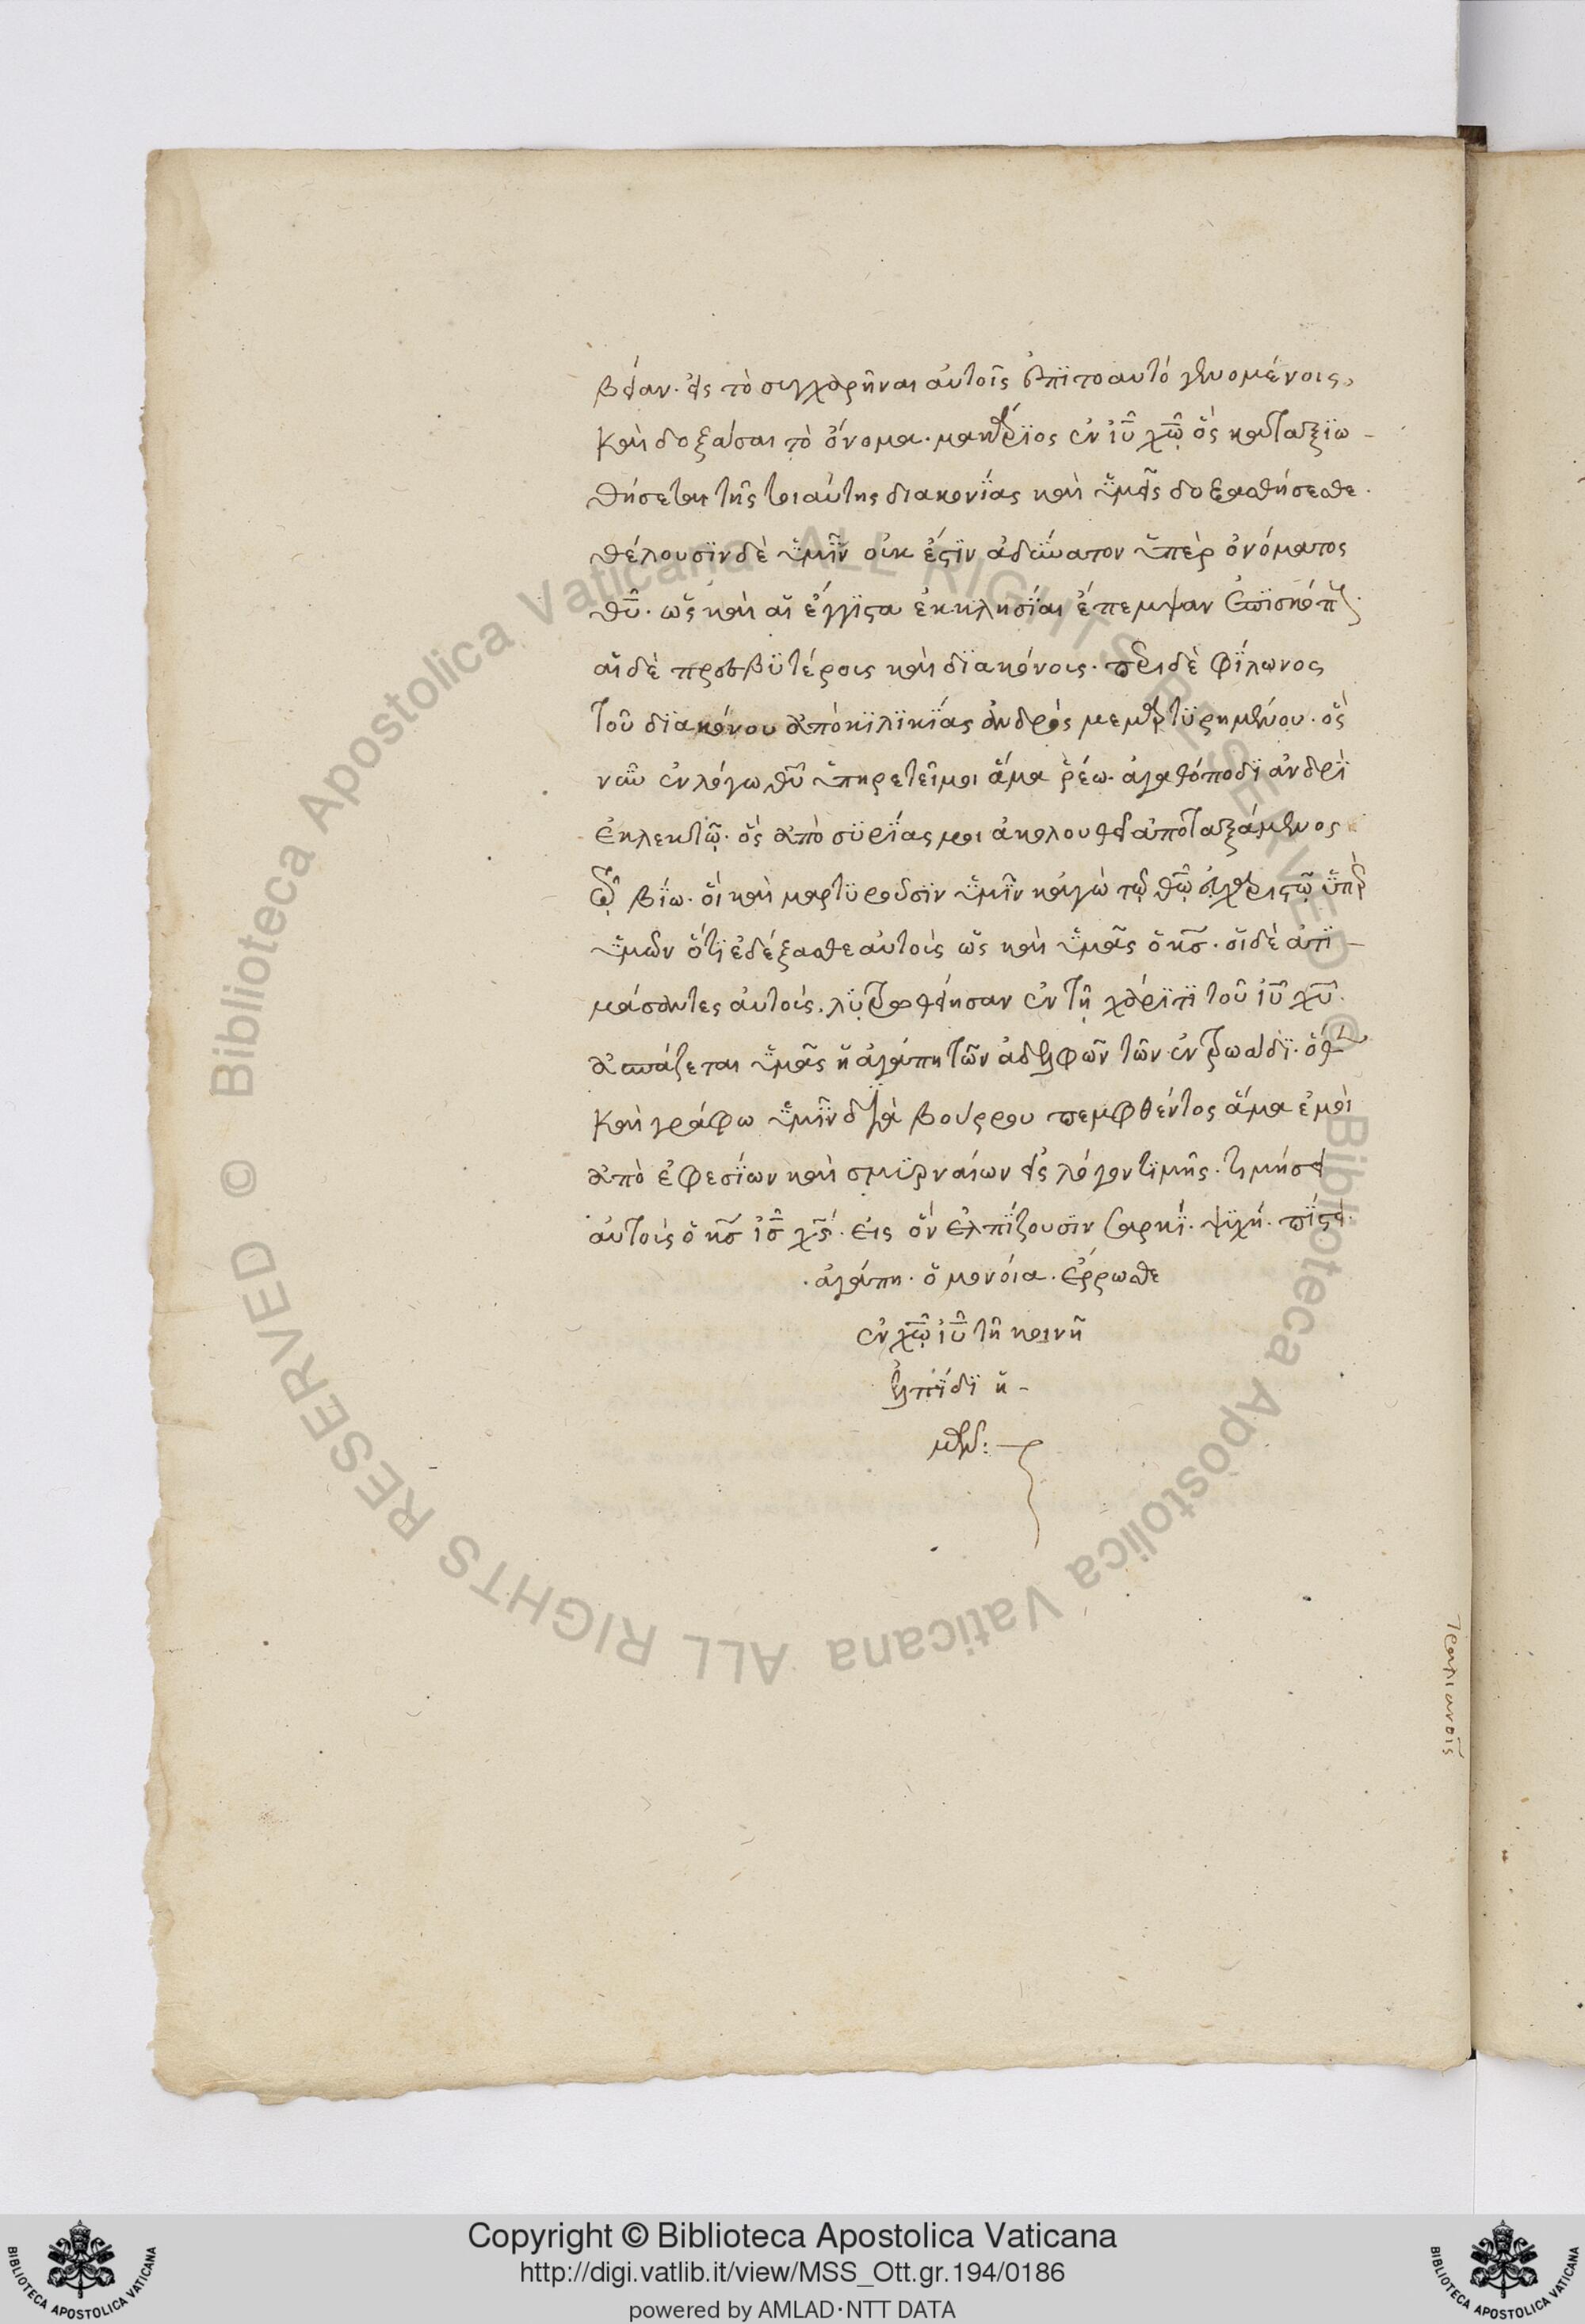 βείαν· εἰς τὸ συγχαρῆναι αὐτοῖς ἐπϊτοαυτό γενομένοις,
καὶ δοξάσαι τὸ ὄνομα· μακάρϊος ἐν ἰῡ χ̅ω̅ ὃς καταξϊω-
θήσεται τῆς τοιαύτης διακονΐας καὶ ὑμεῖς δοξασθήσεσθε·
θέλουσϊν δὲ ὑμῖν οὐκ ἔστϊν ἀδύνατον ὑπὲρ ὀνόματος
θ̅υ̅· ὡς καὶ αἱ ἔγγϊστα ἐκκλησΐαι ἔπεμψαν ἐπϊσκόπους·
αἱ δὲ πρεσβϋτέροις καὶ δϊακόνοις· περὶ δὲ φΐλωνος
τοῦ δϊακόνου ἀπὸ κϊλϊκΐας ἀνδρὸς μεμαρτϋρημένου· ὃς
νῦν ἐν λόγω θ̅υ̅ ὑπηρετεῖ μοι ἅμα ῥέω· ἀγαθόποδϊ ἀνδρϊ
ἐκλεκτῷ· ὃς ἀπὸ σϋρΐας μοι ἀκολουθεῖ ἀποταξάμενος
τῷ βΐω· οἳ καὶ μαρτϋροῦσϊν ὑμῖν κἀγὼ τῷ θ̅ῷ εὐχαριστῶ ὑπὲρ
ὑμῶν ὅτϊ ἐδέξασθε αὐτοὺς ὡς καὶ ὑμᾶς ὁ κ̅σ̅· οἱ δὲ ἀτϊ-
μάσαντες αὐτοὺς, λϋτρωθείησαν ἐν τῇ χάρϊτϊ τοῦ ἰ̅υ̅ χ̅υ̅·
ἀσπάζεται ὑμᾶς ἡ ἀγάπη τῶν ἀδελφῶν τῶν ἐν τρωάδϊ· ὅθεν
καὶ γράφω ὑμῖν δϊὰ βούρρου πεμφθέντος ἅμα ἐμοὶ
ἀπὸ ἐφεσΐων καὶ σμϋρναίων εἰς λόγον τϊμῆς· τιμήσει
αὐτοὺς ὁ κ̅σ̅ ἰ̅σ̅ χ̅σ̅· εἰς ὃν ἐλπΐζουσϊν σαρκΐ· ψϋχή· πΐστει·
·ἀγάπη· ὁμονόια· ἔρρωσθε
ἐν χ̅ῷ ἰ̅υ̅ τῇ κοινῇ
ἐλπΐδϊ ἡ-
μῶν:
Copyright © Biblioteca Apostolica Vaticana
http://digi.vatlib.it/view/MSS_Ott.gr.194/0186
powered by AMLAD·NTT DATA
BIBLIOTECA APOSTOLICA VATICANA
BIBLIOTECA APOSTOLICA VATICANA
© Biblioteca Apostolica Vaticana ALL RIGHTS RESERVED © Biblioteca Apostolica Vaticana ALL RIGHTS RESERVED